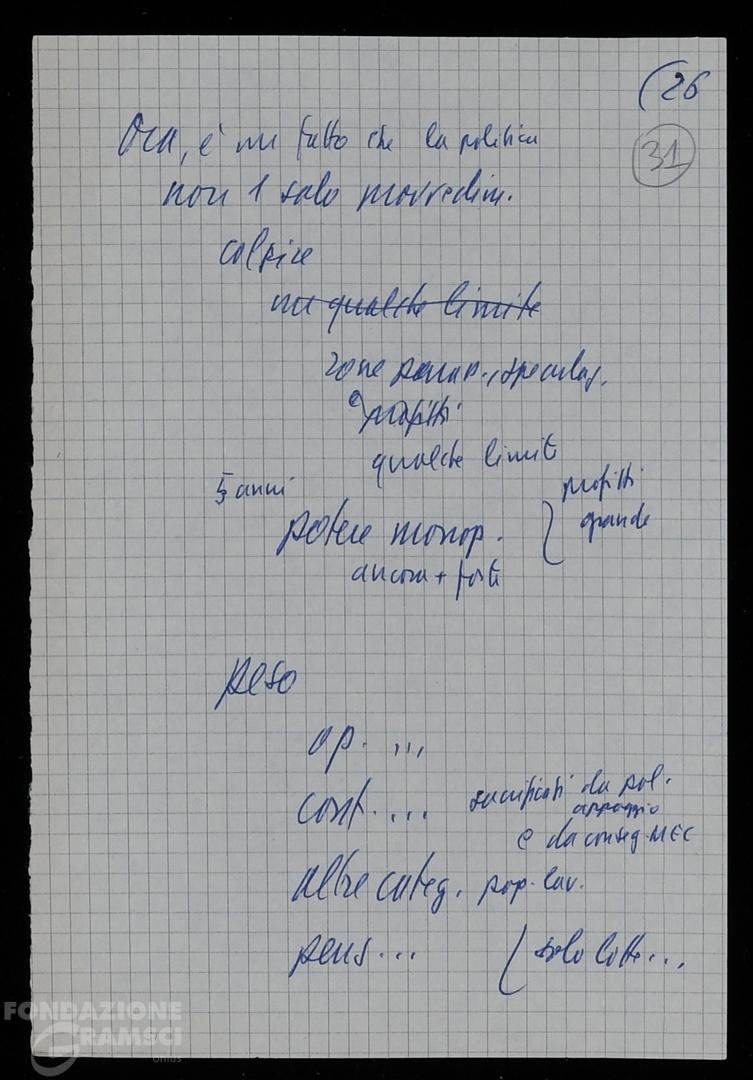 (26
31
Ora, è un fatto che la politica
non 1 solo provvedim.
colpire
un qualche limite
zone parass., speculaz.
e profitti
qualche limiti
5 anni
profitti
grande
potere monop.
ancora + forte
peso
op. ...
cont. ... sacrificati da pol.
appoggio
e da conseg. MEC
altre categ. pop. lav.
pens... (solo lotte...
FONDAZIONE
GRAMSCI
onlus